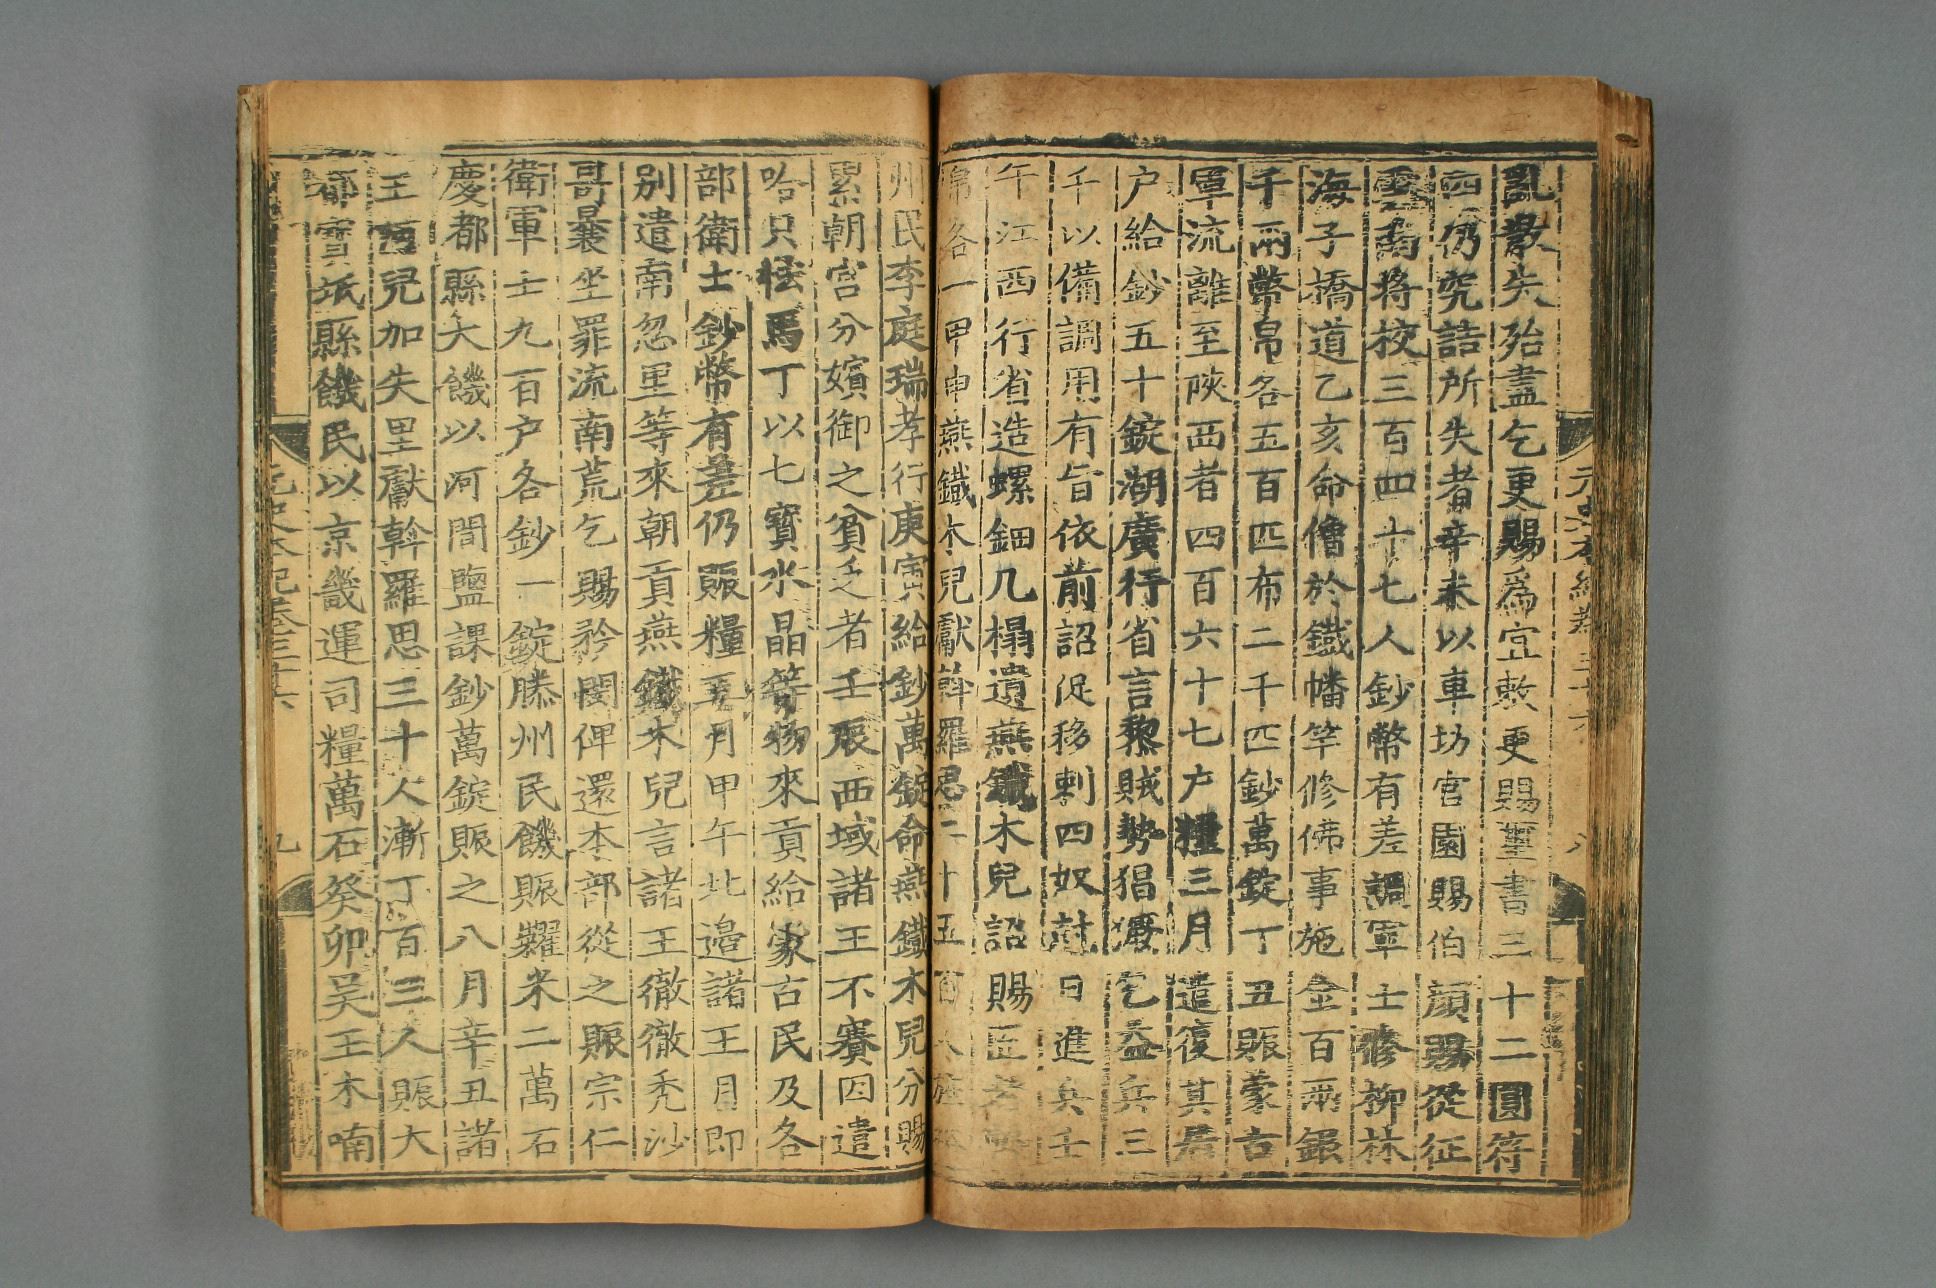 亂散失殆盡乞更賜爲宜敕更賜璽書三十二圓符
四仍究詰所失者辛未以車坊官園賜伯顔賜從征
雲南將校三百四十七人鈔幣有差調軍士修柳林
海子橋道乙亥命僧於鐵幡竿修佛事施金百兩銀
千兩幣帛各五百匹布二千匹鈔萬錠丁丑賑蒙古
軍流離至陜西者四百六十七户糧三月遣復其居
户給鈔五十錠湖廣行省言黎賊勢猖獗乞益兵三
千以備調用有旨依前詔促移剌四奴赴日進兵壬
午江西行省造螺鈿几榻遺燕鐵木兒詔賜匠者幣
帛各一甲申燕鐵木兒獻斡羅思二十五百人
元史本紀卷三十六 八
州民李庭瑞孝行庚寅給鈔萬錠命燕鐵木兒分賜
累朝宮分嬪御之貧乏者壬辰西域諸王不賽因遣
哈只怯馬丁以七寶水晶等物來貢給蒙古民及各
部衛士鈔幣有差仍賑糧五月甲午北邊諸王月即
别遣南忽里等來朝貢燕鐵木兒言諸王徹徹禿沙
哥曩坐罪流南荒乞賜矜閔俾還本部從之賑宗仁
衛軍士九百户各鈔一錠滕州民饑賑糶米二萬石
慶都縣大饑以河間鹽課鈔萬錠賑之八月辛丑諸
王兒加失里獻斡羅思三十人漸丁百三人賑大
都寶坻縣饑民以京畿運司糧萬石癸卯吴王木喃
元史本紀卷三十六 九